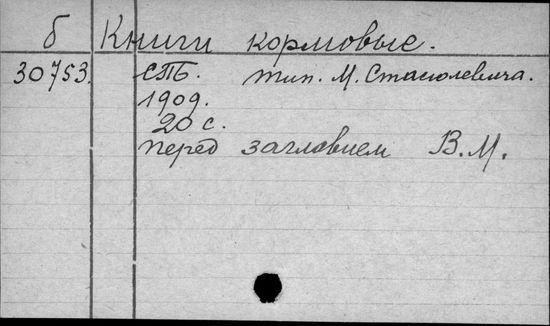 б Книги кормовые.
30753. СПБ. тип. М. Стасюлевича.
1909.
20 с.
перед заглавием В.М.